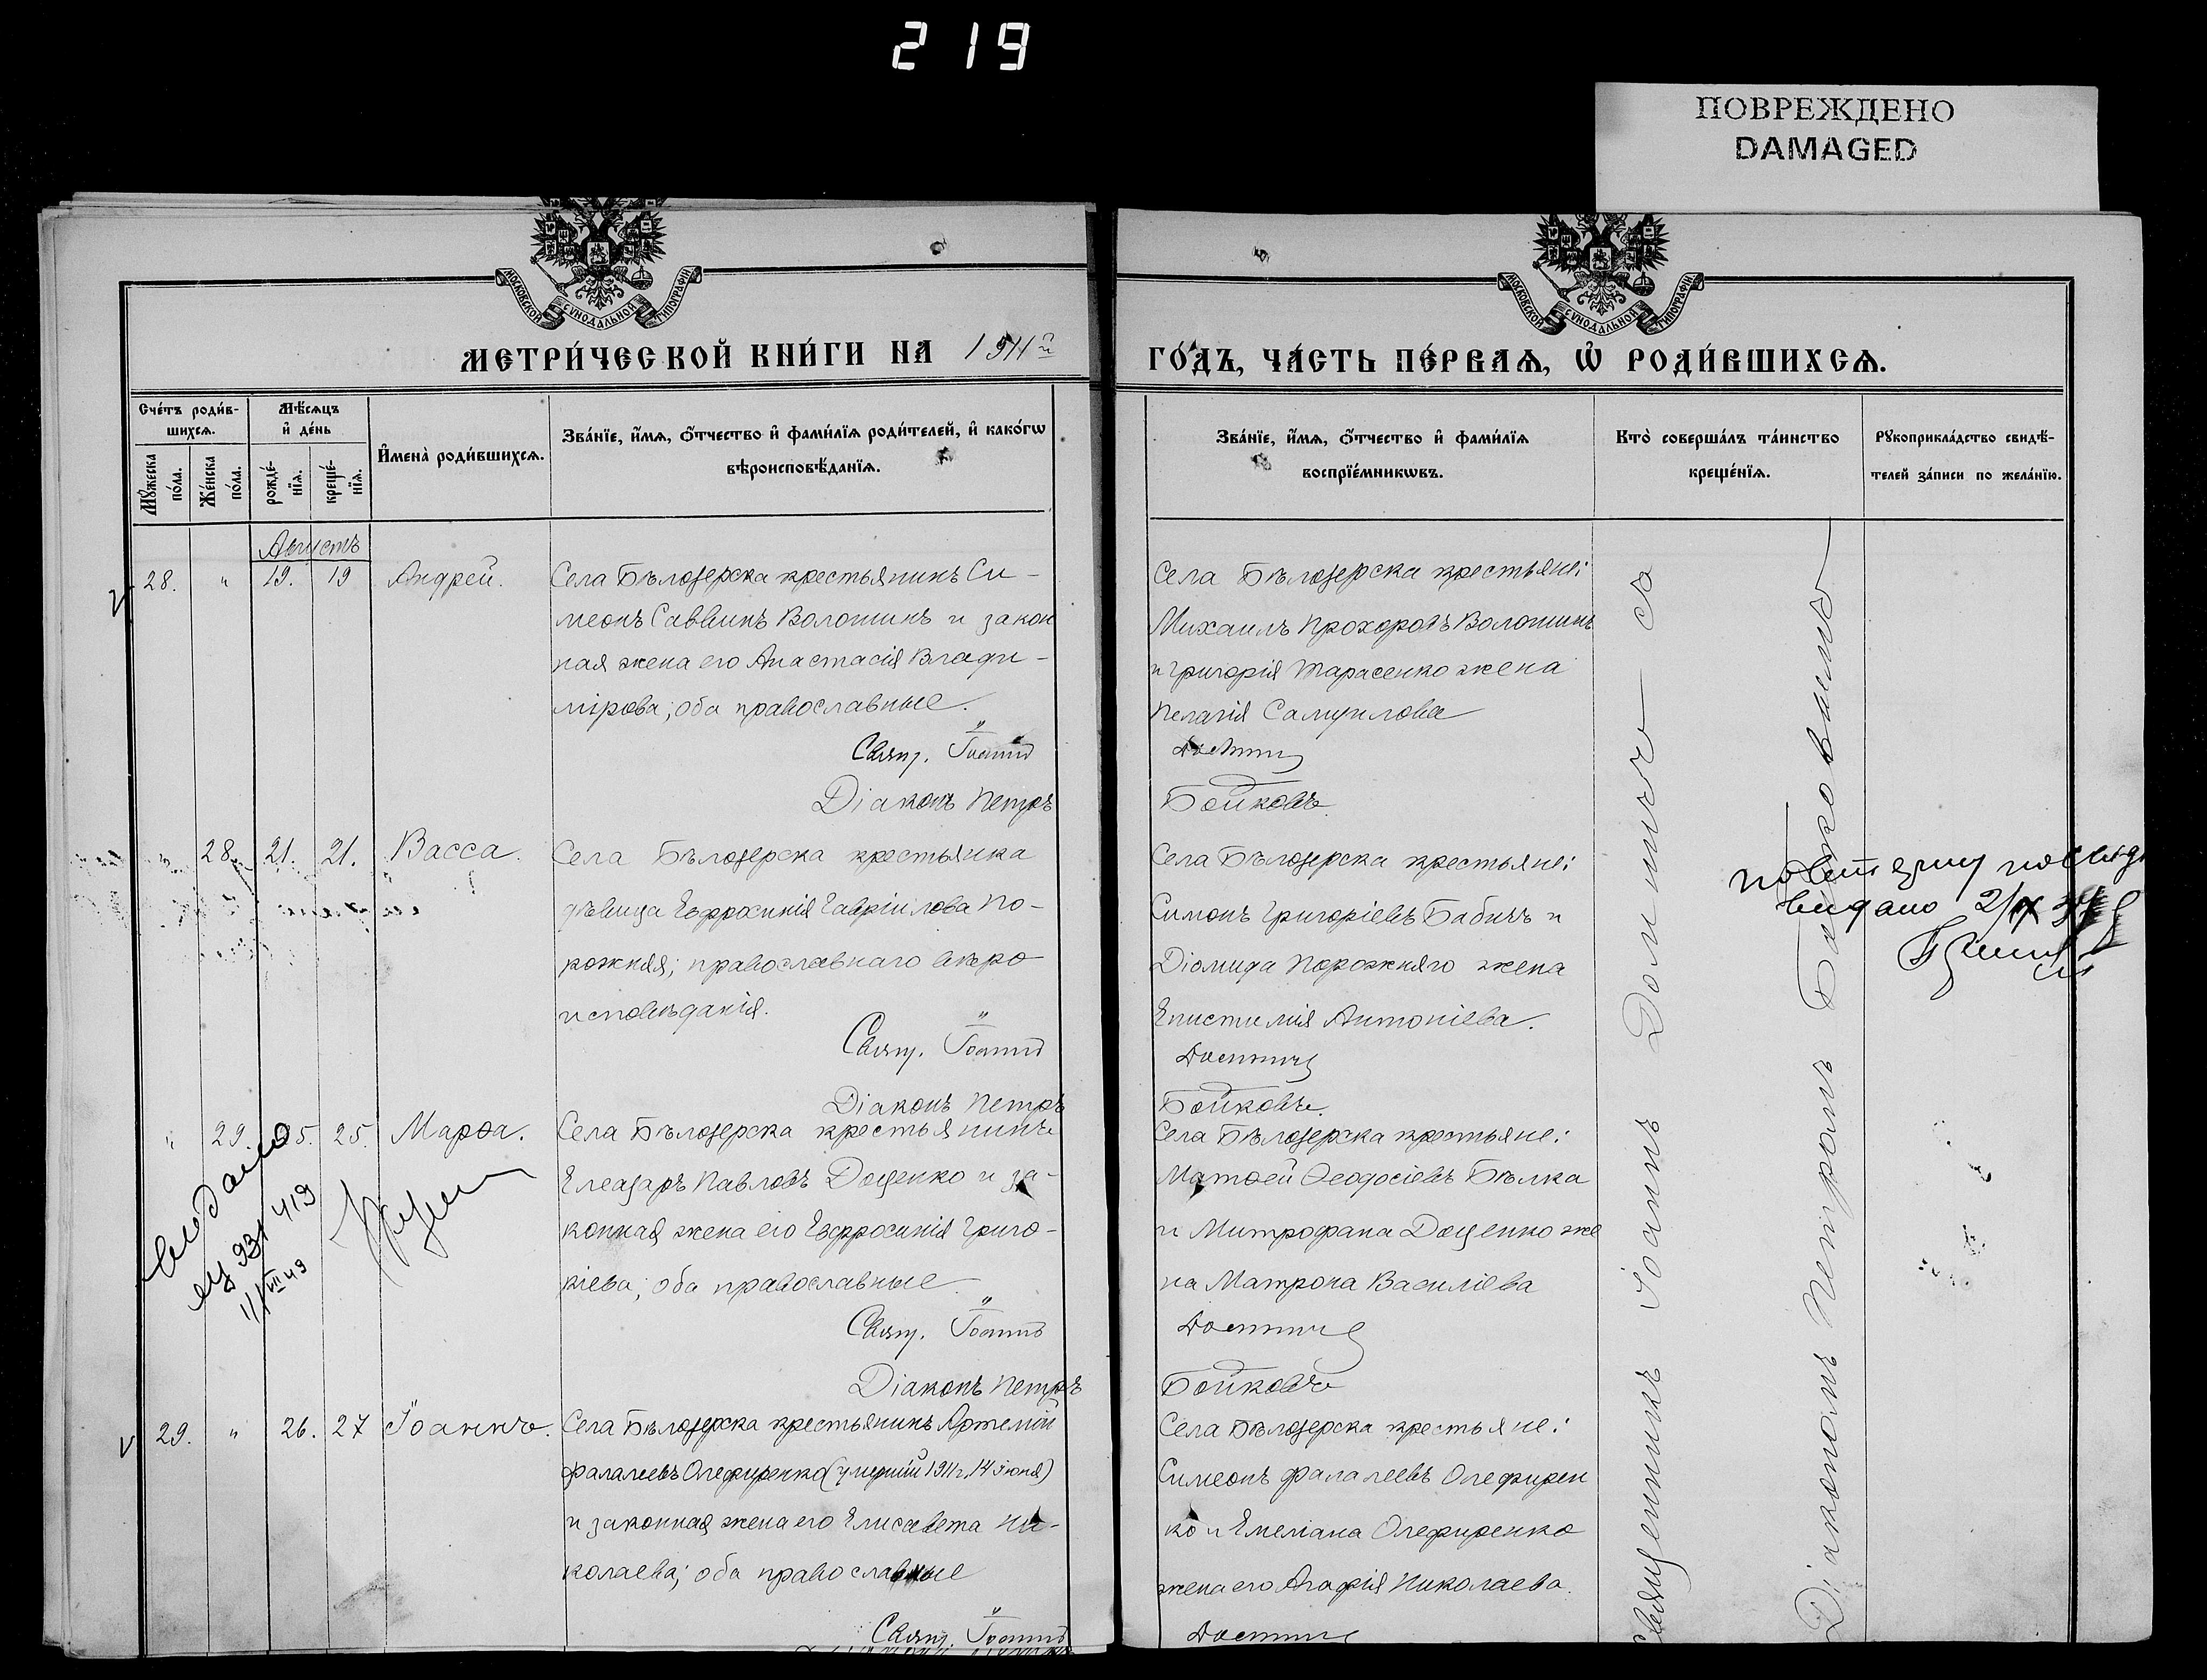 219
ПОВРЕЖДЕНО
DAMAGED
МОСКОВСКОЙ СѴНОДАЛЬНОЙ ТИПОГРАФІИ
МОСКОВСКОЙ СѴНОДАЛЬНОЙ ТИПОГРАФІИ
МЕТРИ́ЧЕСКОЙ КНИ́ГИ НА 1911й
ГО́ДЪ, ЧА́СТЬ ПЕ́РВАѦ, Ѡ РОДИ́ВШИХСѦ.
Сче́тъ роди́в-
шихсѧ.
Мꙋжеска по́ла.
Же́нска по́ла.
Мѣ́сѧцъ
и҆ де́нь
рожде́-
нїѧ.
креще́-
нїѧ.
И҆мена̀ роди́вшихсѧ.
Зва́нїе, и҆́мѧ, ѻ҆́тчество и҆ фами́лїѧ роди́телей, и҆ како́гѡ
вѣроисповѣ́данїѧ.
Зва́нїе, и҆́мѧ, ѻ҆́тчество и҆ фами́лїѧ
воспрїе́мникѡвъ.
Кто̀ соверша́лъ та́инство
креще́нїѧ.
Рꙋкоприкла́дство свидѣ́-
телей за́писи по жела́нїю.
Августъ
28. " 19. 19 Андрей.
Села Бѣлозерска крестьянинъ Си-
меонъ Саввинъ Волошинъ и закон
ная жена его Анастасія Влади-
мірова; оба православные.
Свящ. Іоаннъ
Діаконъ Петръ
Села Бѣлозерска крестьяне:
Михаилъ Прохоровъ Волошинъ
и Григорія Тарасенко жена
Пелагія Самуилова
Бойковъ
" 28. 21. 21. Васса.
Села Бѣлозерска крестьянка
дѣвица Евфросинія Гавріилова По-
рожняя; православнаго вѣро
исповѣданія.
Свящ. Іоаннъ
Діаконъ Петръ
Села Бѣлозерска крестьяне:
Симонъ Григоріевъ Бабичъ и
Діомида Порожняго жена
Епистимія Антоніева.
Бойковъ.
" 29. 25. 25. Марѳа.
Села Бѣлозерска крестьянинъ
Елеазаръ Павловъ Доценко и за-
конная жена его Евфросинія Григо-
ріева; оба православные
Свящ. Іоаннъ
Діаконъ Петръ
Села Бѣлозерска крестьяне:
Матѳей Ѳеодосіевъ Бѣлка
и Митрофана Доценко же
на Матрона Василіева
Бойковъ
29. " 26. 27 Іоаннъ.
Села Бѣлозерска крестьянинъ Артемій
Фалалеевъ Олефиренко (умершій 1911г. 14 іюня)
и законная жена его Елисавета Ни-
колаева; оба православные
Свящ. Іоаннъ
Села Бѣлозерска крестьяне:
Симеонъ Фалалеевъ Олефирен
ко и Емеліана Олефиренко
жена его Агафія Николаева.
Священникъ Іоаннъ
Діакономъ Петромъ
видано
видано